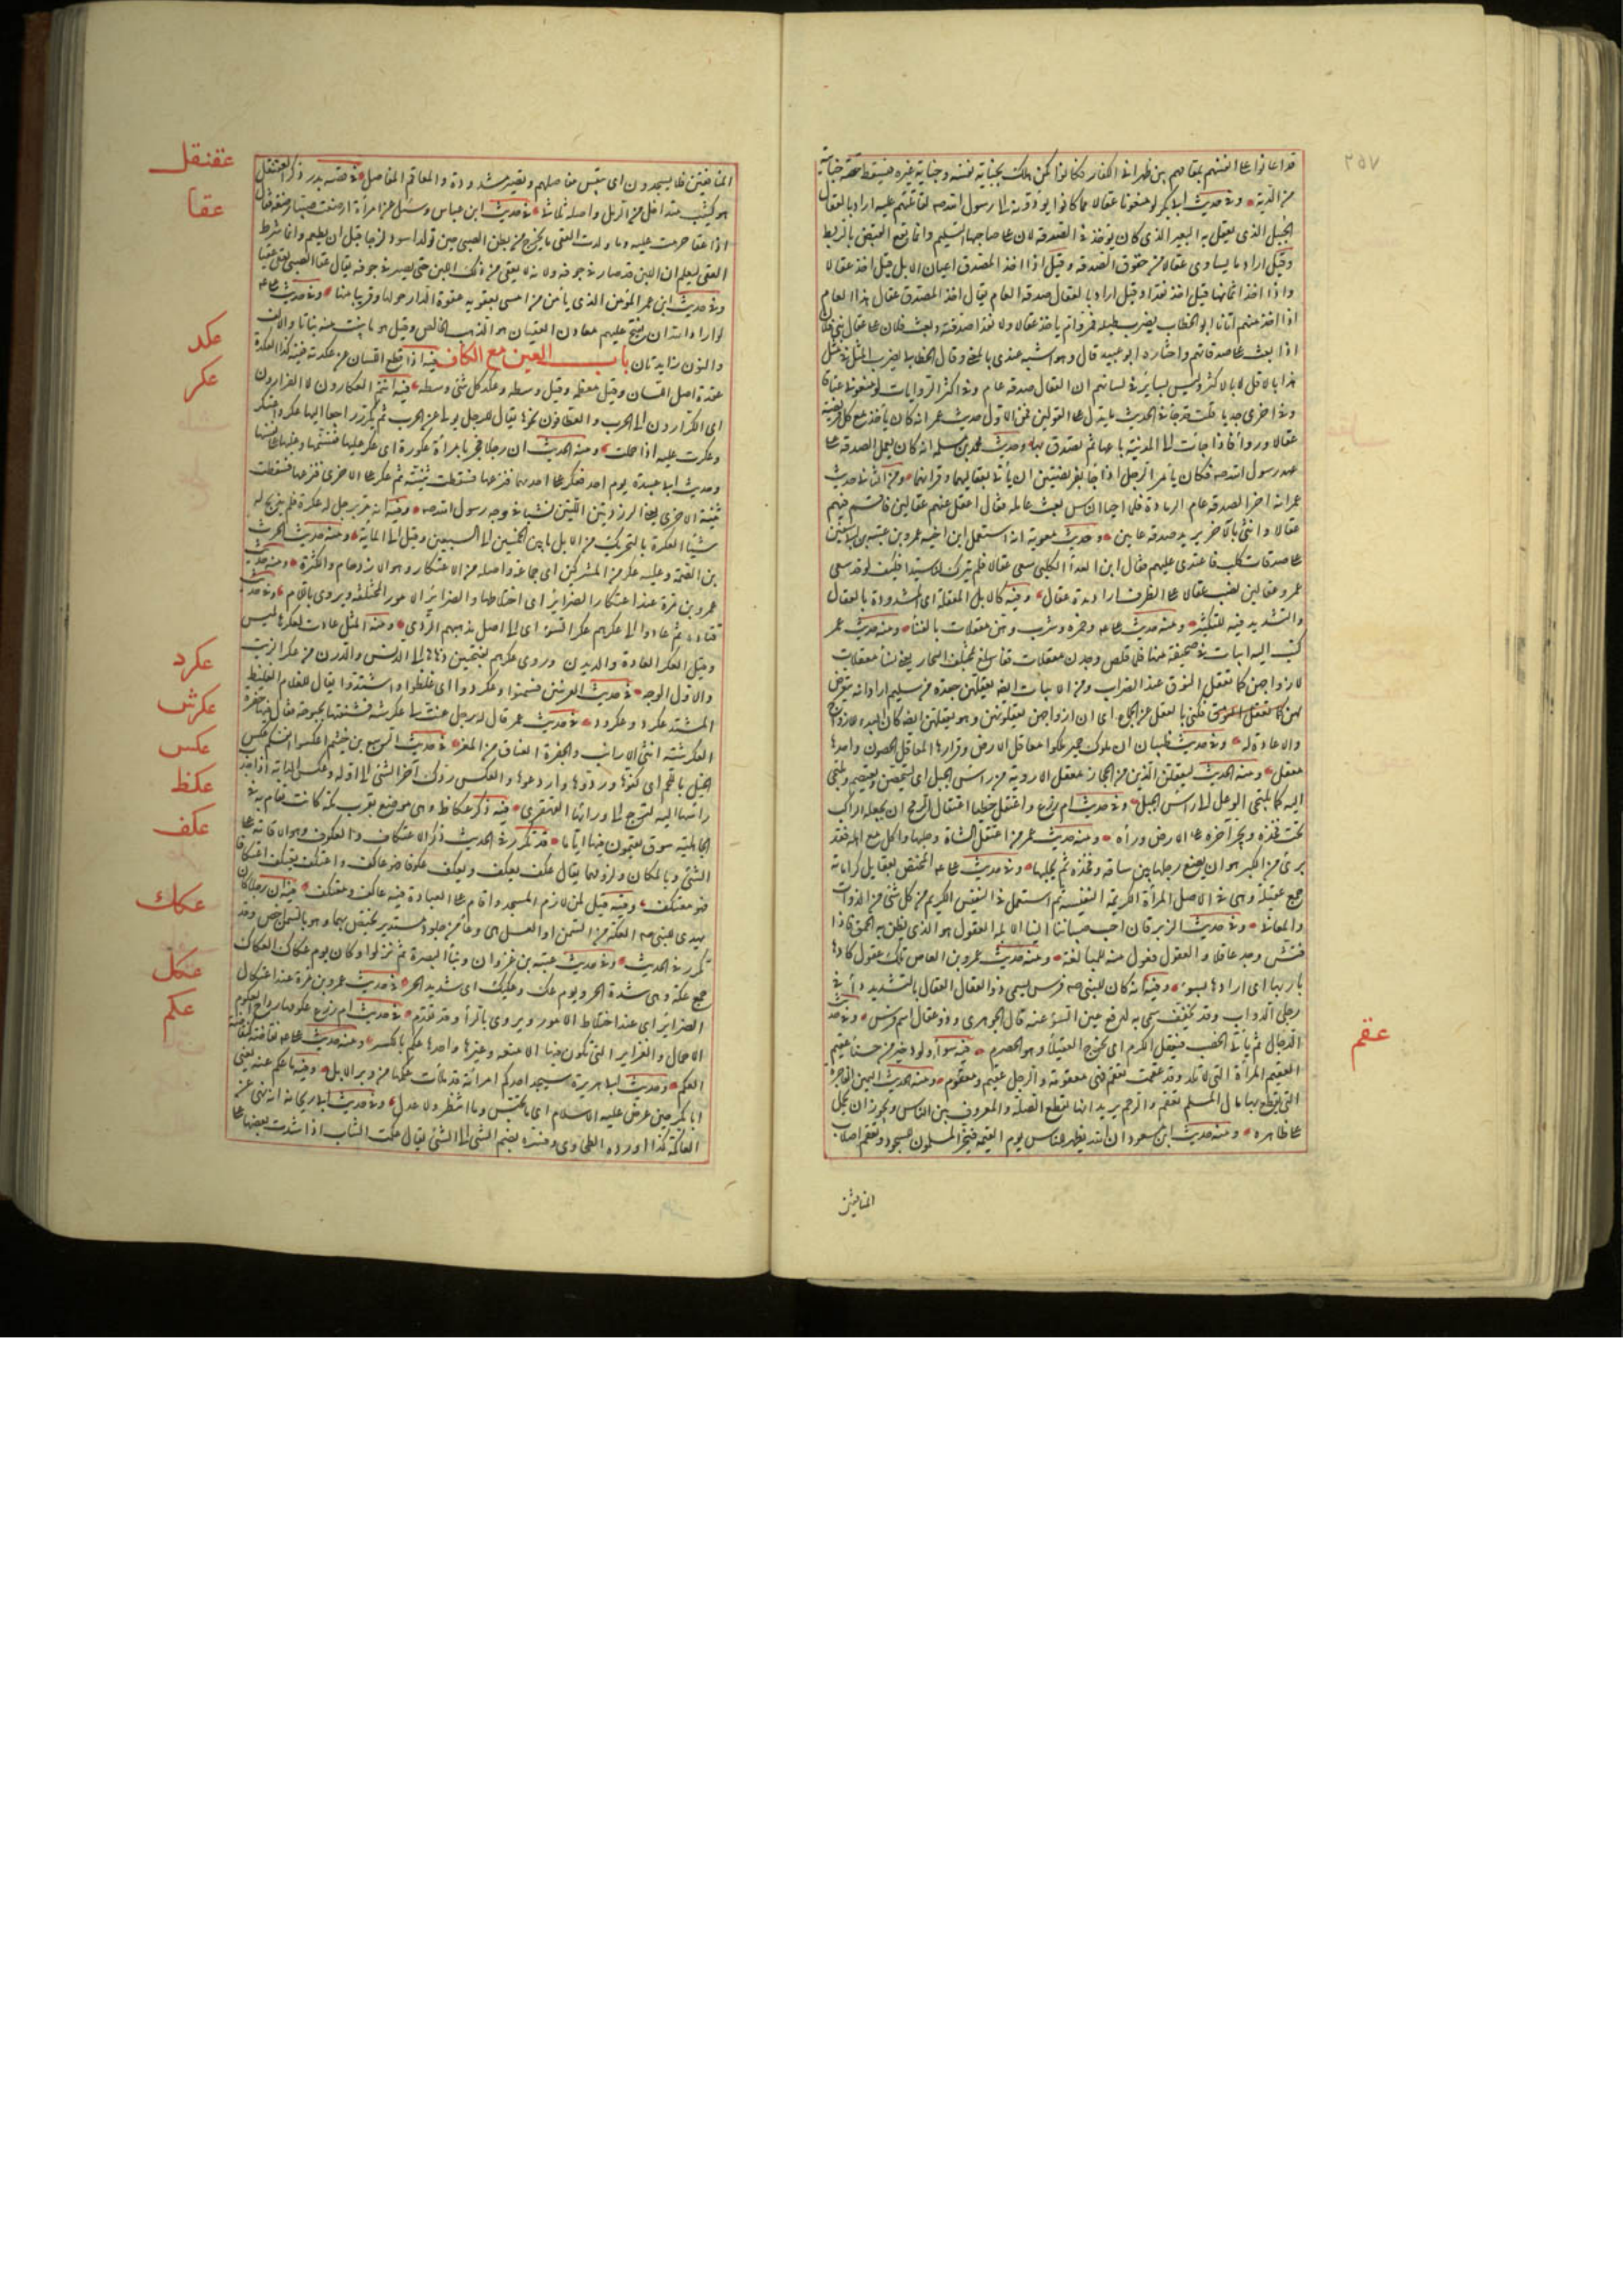 قد اعانوا على انفسهم بمقامهم بين ظهراني الكفار فكانوا كمن هلك بجناية نفسه وجناية غيره فتسقط حصة جنايته
من الدية وفي حديث ابي بكر لو منعونا عقالا مما كانوا يؤدونه الى رسول الله صه لقاتلتهم عليه اراد بالعقال
الحبل الذي يعقل به البعير الذي كان يؤخذ في الصدقة لان على صاحبها التسليم وانما يقع القبض بالرباط
وقيل اراد ما يساوى عقالا من حقوق الصدقة وقيل اذا اخذ المصدق اعيان الابل قيل اخذ عقالا
واذا اخذ اثمانها قيل اخذ نقدا وقيل اراد بالعقال صدقة العام يقال اخذ المصدق عقال هذا العام
اذا اخذ منهم
اذا بعث على صدقاتهم واختاره ابو عبيد قال وهو اشبه عندي بالمعنى وقال الخطابي انما يضرب المثل في مثل
هذا بالاقل لا بالاكثر وليس بسائر في لسانهم ان العقال صدقة عام وفي اكثر الروايات لو منعوني عناقا
وفي اخرى جديا قلت قد جاء في الحديث ما يدل على القولين فمن الاول حديث عمر انه كان يأخذ مع كل فريضة
عقالا ورواء فاذا جاءت الى المدينة باعها ثم تصدق بها وحديث محمد بن مسلمة انه كان يعمل على الصدقة في
عهد رسول الله صه فكان يأمر الرجل اذا جاء بفريضتين ان يأتي بعقاليهما وقرانيهما ومن الثاني حديث
عمر انه اخر الصدقة عام الرمادة فلما احيا الناس بعث عامله فقال اعقل عنهم عقالين فاقسم فيهم
عقالا وائتني بالآخر يريد صدقة عامين وحديث معوية انه استعمل ابن اخيه عمرو بن عتبة بن ابي سفين
على صدقات كلب فاعتدى عليهم فقال ابن العداء الكلبي سعى عقالا فلم يترك لنا سبدا فكيف لو قد سعى
عمرو عقالين نصب عقالا على الظرف اراد مدة عقال وفيه كالابل المعقلة اى المشدودة بالعقال
والتشديد فيه للتكثير ومنه حديث على وحمزة وشرب وهن معقلات بالفناء ومنه حديث عمر
كتب اليه ابيات في صحيفة منها فما قلص وجدن معقلات قفا سلع بمختلف التجار يعنى نساء معقلات
لازواجهن كما تعقل النوق عند الضراب ومن الابيات ايضا يعقلهن جعدة من سليم اراد انه يتعرض
لهن فكنى بالعقل عن الجماع اى ان ازواجهن يعقلونهن وهو يعقلهن ايضا كان البدء للازواج
والاعادة له وفي حديث ظبيان ان ملوك حمير ملكوا معاقل الارض وقرارها المعاقل الحصون واحدها
معقل ومنه الحديث ليعقلن الدين من الحجاز معقل الاروية من راس الجبل اى ليتحصن ويعتصم ويلتجى
اليه كما يلتجى الوعل الى راس الجبل وفي حديث ام زرع واعتقل خطيا اعتقال الرمح ان يجعله الراكب
تحت فخذه ويجر آخره على الارض ورأه ومنه حديث عمر من اعتقل الشاة وحلبها واكل مع اهله فقد
برئ من الكبر هو ان يضع رجلها بين ساقه وفخذه ثم يحلبها وفي حديث على المختص بعقايل كراماته
جمع عقيلة وهى في الاصل المرأة الكريمة النفيسة ثم استعمل في النفيس الكريم من كل شئ من الذوات
والمعاني وفي حديث الزبرقان احب صبياننا الينا الابله العقول هو الذى يظن به الحمق فاذا
فتش وجد عاقلا والعقول فعول منه للمبالغة ومنه حديث عمرو بن العاص تلك عقول كادها
باريها اى ارادها بسوء وفيه انه كان للنبى صه فرس يسمى ذو العقال العقال بالتشديد داء في
رجلى الدواب وقد يخفف سمى به لدفع عين السوء عنه قال الجوهرى وذو عقال اسم فرس وفي حديث
الدجال ثم يأتى الخصب فيعقل الكرم اى يخرج العقيلى وهو الحصرم فيه سوداء ولود خير من حسناء عقيم
العقيم المرأة التى لا تلد وقد عقمت تعقم فهى معقومة والرجل عقيم ومعقوم ومنه الحديث اليمين الفاجرة
التى يقطع بها مال المسلم تعقم الرحم يريد انها تقطع الصلة والمعروف بين الناس ويجوز ان يحمل
على ظاهره ومنه حديث ابن مسعود ان الله يظهر للناس يوم القيمة فيخر المسلمون للسجود وتعقم اصلاب
المنافقين
عقم
عقنقل
عقا
عكد
عكر
عكرد
عكرش
عكس
عكظ
عكف
عكك
عكل
عكم
المنافقين فلا يسجدون اى تيبس مفاصلهم وتصير مشدودة والمعاقم المفاصل في قصة بدر ذكر العقنقل
هو كثيب متداخل من الرمل واصله ثلاثى في حديث ابن عباس وسئل عن امرأة ارضعت صبيا رضعة فقال
اذا عقا حرمت عليه وما ولدت العقى ما يخرج من بطن الصبى حين يولد اسود لزجا قبل ان يطعم وانما شرط
العقى ليعلم ان اللبن قد صار في جوفه ولانه لا يعقى من ذلك اللبن حتى يصير في جوفه يقال عقا الصبى يعقى عقيا
وفي حديث ابن عمر المؤمن الذى يأمن من امسى بعقوته عقوة الدار حولها وقريبا منها وفي حديث على
لو اراد الله ان يفتح عليهم معادن العقيان هو الذهب الخالص وقيل هو ما ينبت منه نباتا والالف
والنون زايدتان باب العين مع الكاف فيه اذا قطع اللسان من عكدته ففيه كذا العكدة
عقدة اصل اللسان وقيل معظمه وقيل وسطه وعكد كل شئ وسطه فيه انتم العكارون لا الفرارون
اى الكرارون الى الحرب والعطافون نحوها يقال للرجل يولى عن الحرب ثم يكر راجعا اليها عكر واعتكر
وعكرت عليه اذا حملت ومنه الحديث ان رجلا فجر بامرأة عكورة اى عكر عليها فتسنمها وغلبها على نفسها
وحديث ابى عبيدة يوم احد فعكر على احديهما فنزعها فسقطت ثنيته ثم عكر على الاخرى فنزعها فسقطت
ثنيته الاخرى يعنى الزردتين اللتين نشبتا في وجه رسول الله صه وفيه انه مر برجل له عكرة فلم يذبح له
شيئا العكرة بالتحريك من الابل ما بين الخمسين الى السبعين وقيل الى الماية ومنه حديث الحرث
بن الصمة وعليه عكر من المشركين اى جماعة واصله من الاعتكار وهو الازدحام والكثرة ومنه حديث
عمرو بن مرة عند اعتكار الضرائر اى اختلاطها والضرائر الامور المختلفة ويروى باللام وفي حديث
قتادة ثم عادوا الى عكرهم عكر السوء اى الى اصل مذهبهم الردى ومنه المثل عادت لعكرها لميس
وقيل العكر العادة والديدن وروى عكرهم بفتحتين ذهابا الى الدنس والدرن من عكر الزيت
والاول الوجه في حديث العرنيين فسمنوا وعكردوا اى غلظوا واشتدوا يقال للغلام الغليظ
المشتد عكرد وعكرود في حديث عمر قال له رجل عنت لى عكرشة فشنقتها بجبوبة فقال فيها جفرة
العكرشة انثى الارانب والجفرة العناق من المعز في حديث الربيع بن خثيم اعكسوا انفسكم عكس
الخيل باللجم اى كفوها وردوها واردعوها والعكس ردك آخر الشئ الى اوله وعكس الدابة اذا جذب
راسها اليه لترجع الى ورائها القهقرى فيه ذكر عكاظ وهى موضع بقرب مكة كانت تقام به في
الجاهلية سوق يقيمون فيها اياما قد تكرر في الحديث ذكر الاعتكاف والعكوف وهو الاقامة على
الشئ وبالمكان ولزومهما يقال عكف يعكف ويعكف عكوفا فهو عاكف واعتكف يعتكف اعتكافا
فهو معتكف ومنه قيل لمن لازم المسجد واقام على العبادة فيه عاكف ومعتكف فيه ان رجلا كان
يهدى للنبى صه العكة من السمن او العسل هى وعاء من جلود مستدير يختص بهما وهو بالسمن اخص وقد
تكرر في الحديث وفي حديث عتبة بن غزوان وبناء البصرة ثم نزلوا وكان يوم عكاك العكاك
جمع عكة وهى شدة الحر ويوم عك وعكيك اى شديد الحر في حديث عمرو بن مرة عند اعتكال
الضرائر اى عند اختلاط الامور ويروى بالراء وقد تقدم في حديث ام زرع عكومها رداح العكوم
الاحمال والغراير التى تكون فيها الامتعة وغيرها واحدها عكم بالكسر ومنه حديث على نفاضة كنفاضة
العكم وحديث ابى هريرة سيجد احدكم امرأته قد ملأت عكمها من وبر الابل وفيه ما عكم عنه يعنى
ابا بكر حين عرض عليه الاسلام اى ما تحبس وما انتظر ولا عدل وفي حديث ابى ريحانة انه نهى عن
المعاكمة كذا اورده الطحاوى وفسره بضم الشئ الى الشئ يقال عكمت الثياب اذا شددت بعضها على